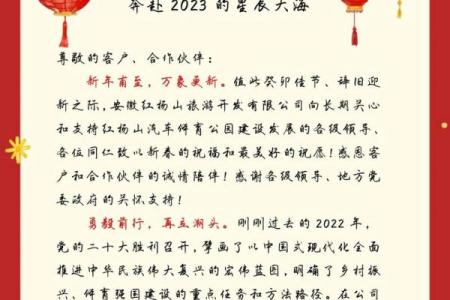 奔赴 2023 的星辰大海
尊敬的客户、合作伙伴：
新年甫至，万象更新。值此癸卯佳节、辞旧迎
新之际，安徽红杨山旅游开发有限公司向长期关心
和支持红杨山汽车体育公园建设发展的各级领导、
各位同仁致以新春的祝福和最美好的祝愿！感恩客
户和合作伙伴的诚情陪伴！感谢各级领导、地方党
委政府的关怀支持！
勇毅前行，再立潮头。刚刚过去的 2022 年，
党的二十大胜利召开，擘画了以中国式现代化全面
推进中华民族伟大复兴的宏伟蓝图，明确了乡村振
兴、体育强国建设的重点任务和方法路径。在公司